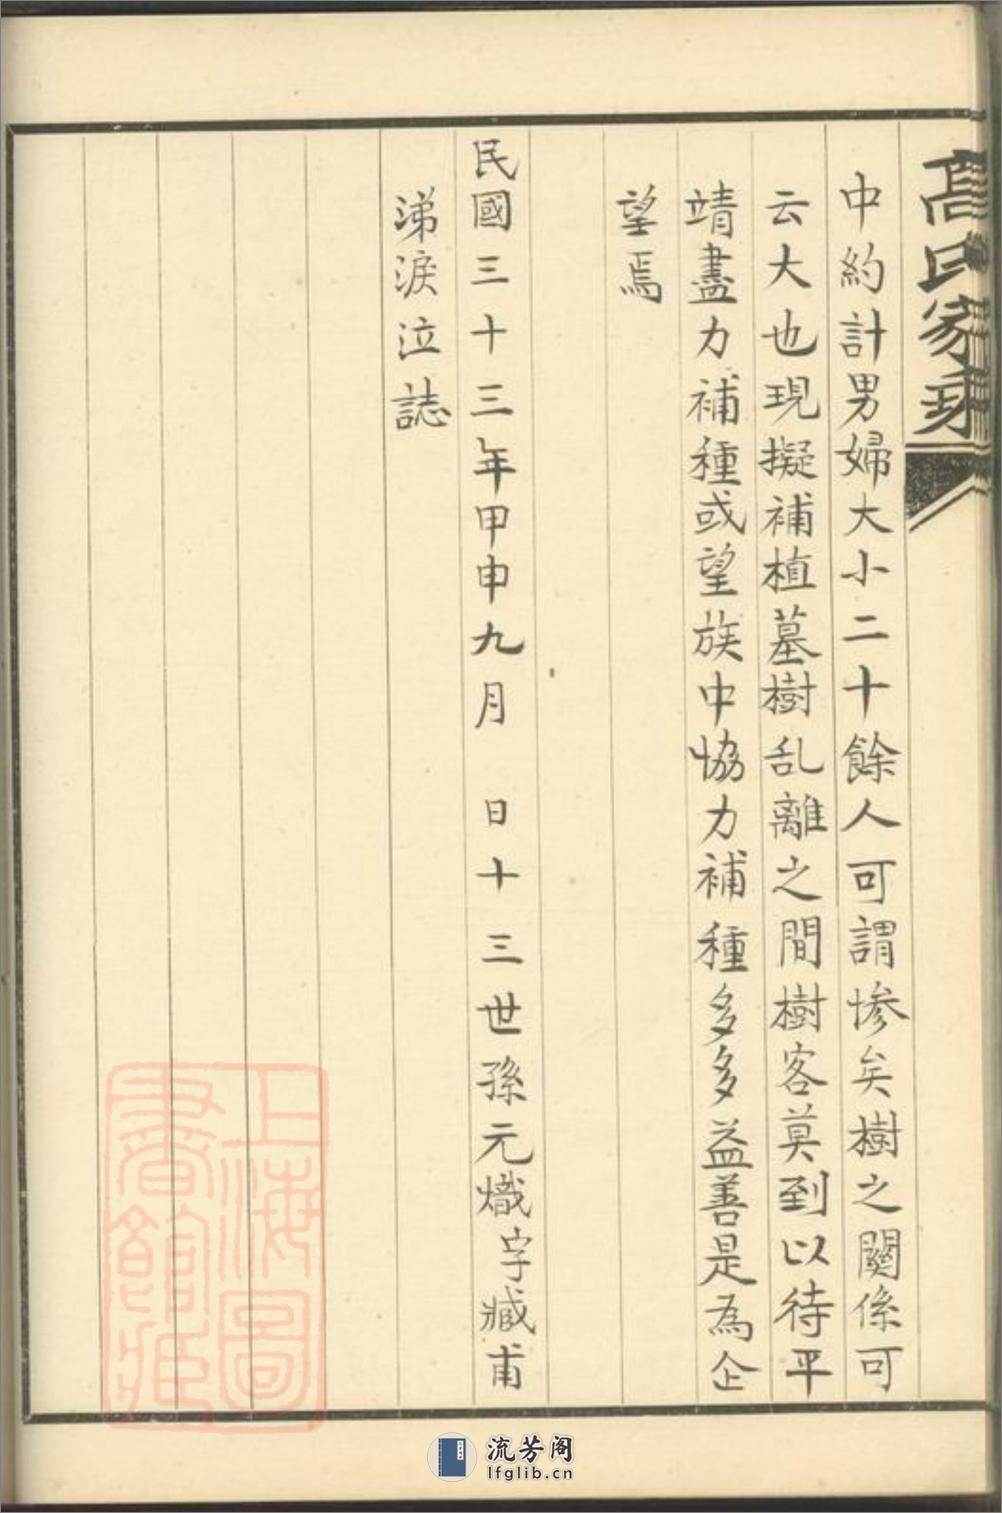 高氏家乘
中約計男婦大小二十餘人可謂慘矣樹之關係可
云大也現擬補植墓樹乱離之間樹客莫到以待平
靖盡力補種或望族中協力補種多多益善是為企
望焉
民國三十三年甲申九月　日十三世孫元熾字臧甫
涕淚泣誌
上海圖
書館藏
流芳阁
lfglib.cn